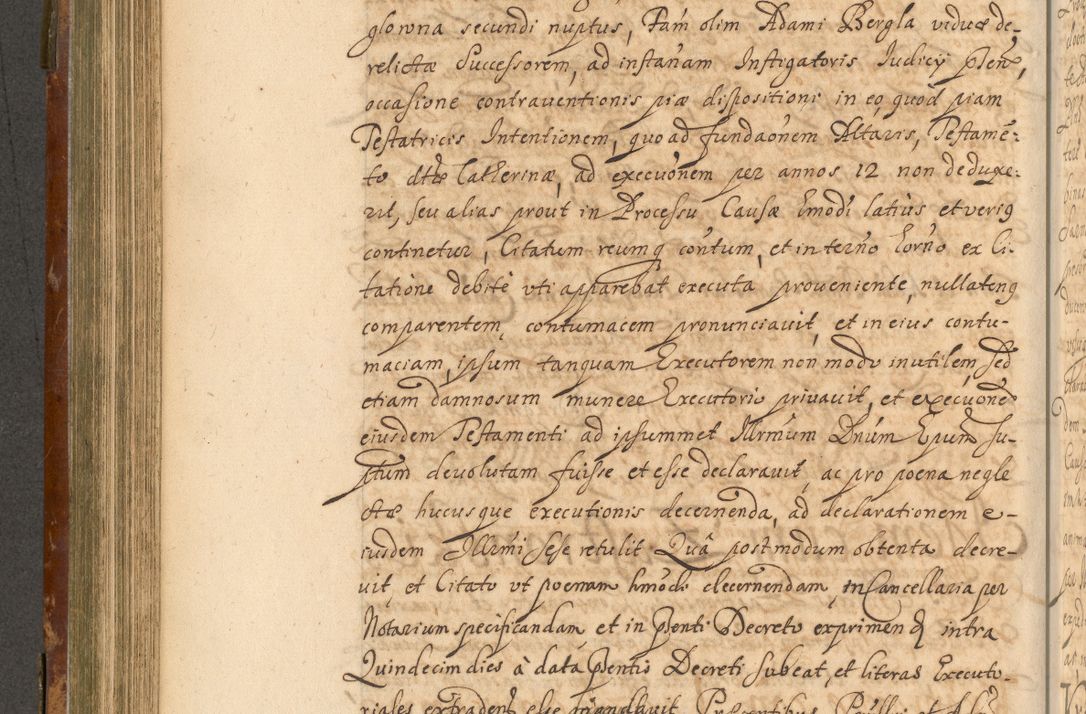 glowna secundi nuptus, Tam olim Adami Bergla viduæ de-
relictæ Successorem, ad instãnam Instigatoris Iudicÿ pñtis,
occasione contrauentionis piæ dispositioni in eo quod piam
Testatricis Intentionem, quo ad fundaõnem Altaris, Testamẽ-
to dtæ Catherinæ, ad execuõnem per annos 12 non deduxe-
rit, seu alias prout in Processu Causæ hmõdi latius et verig
continetur, Citatum reumq contum, et in termo horno ex Ci-
tatione debitè vti apparebat executa proueniente, nullateng
comparentem, contumacem pronunciauit, et in eius contu-
maciam, ipsum tanquam Executorem non modo inutilem, sed
etiam damnosum munere Executorio priuauit, et execuõne
eiusdem Testamenti ad ipsummet Illrmum Dnum Epum su-
ptum deuolutam fuisse et esse declarauit, ac pro poena negle
ctæ hucusque executionis decernenda, ad declarationem e-
iusdem Illrmi sese retulit Quâ postmodum obtenta decre-
uit, et Citato vt poenam hmodi decernendam, in Cancellaria per
Notarium specificandam, et in pñti Decreto exprimend intra
Quindecim dies à data pñtis Decreti subeat, et literas Executo-
riales extradend esse mandauit Præsentibus